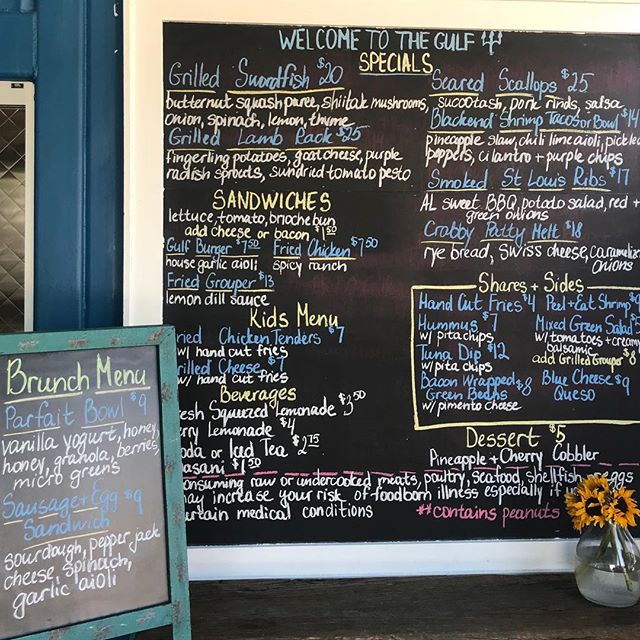 WELCOME TO THE GULF
SPECIALS
Grilled Swordfish $20
butternut squash puree, shiitak mushrooms,
onion, spinach, lemon, thyme
Grilled Lamb Rack $25
fingerling potatoes, goat cheese, purple
radish sprouts, sundried tomato pesto
SANDWICHES
lettuce, tomato, brioche bun
add cheese or bacon $1.50
Gulf Burger $7.50 Fried Chicken $7.50
house garlic aioli spicy ranch
Fried Grouper $13
lemon dill sauce
Kids Menu
Fried Chicken Tenders $7
w/ hand cut fries
Grilled Cheese
w/ hand cut fries
Beverages
Fresh Squeezed Lemonade $3.50
Lemonade $4
Soda or Iced Tea $2.75
Dasani $1.50
Seared Scallops $25
succotash, pork rinds, salsa
Blackend Shrimp Tacos or Bowl $14
pineapple slaw, chili lime aioli, pickled
peppers, cilantro + purple chips
Smoked St Louis Ribs $17
AL sweet BBQ, potato salad, red +
green onions
Crabby Patty Melt $18
rye bread, swiss cheese, caramelize
onions
Shares + Sides
Hand Cut Fries $4
Hummus $7
w/ pita chips
Tuna Dip $12
w/ pita chips
Bacon Wrapped $8
Green Beans
w/ pimento cheese
Peel + Eat Shrimp
Mixed Green Salad $5
w/ tomatoes + creamy
balsamic
add Grilled Grouper $8
Blue Cheese $9
Queso
Dessert $5
Pineapple + Cherry Cobbler
consuming raw or undercooked meats, poultry, seafood, shellfish, eggs
may increase your risk of foodborn illness especially if
certain medical conditions
**contains peanuts
Brunch Menu
Parfait Bowl $9
vanilla yogurt, honey,
honey, granola, berries,
micro greens
Sausage + Egg $9
Sandwich
sourdough, pepper jack
cheese, spinach,
garlic aioli